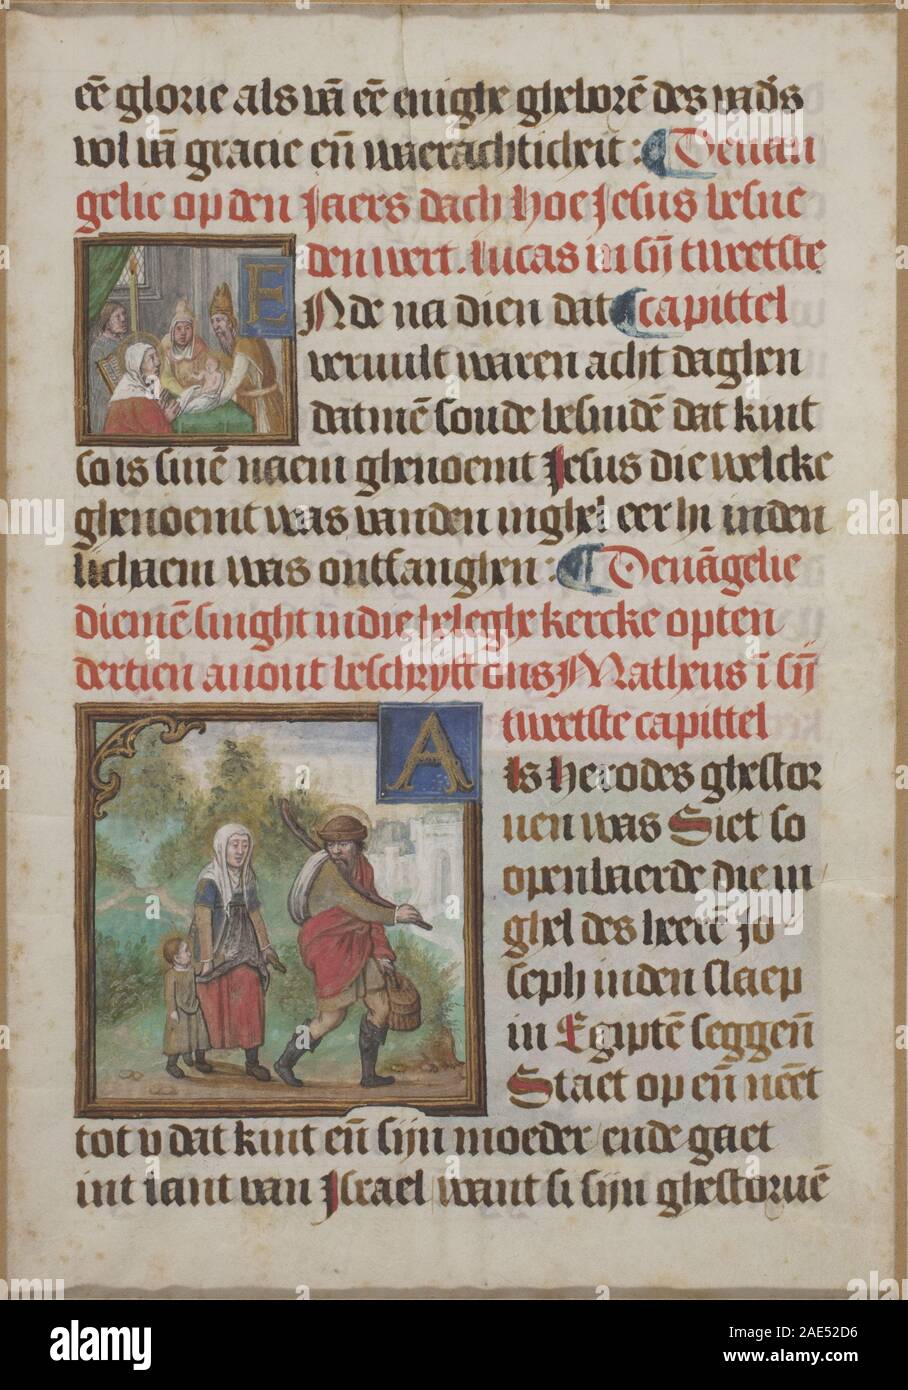 eē glorie als vā eē enighe ghelorē des vad's
vol vā gracie eñ waerachticheit : Devan
gelie op den Jaers dach hoe Jesus lesue
den wert. Lucas in sij tweetste
ENde na dien dat capittel
vervult waren acht daghen
datmē soude lesnidē dat kint
so is sinē naem ghenoemt Jesus die welcke
ghenoemt was vanden inghel eer hi inden
lichaem was ontfanghen : Devāgelie
diemē singht in die heleghe kercke op ten
dertien avont leschryft ons Matheus ī sij
tweetste capittel
Als Herodes ghestor
ven was Siet so
openlaerde die in
ghel des heerē Jo
seph inden slaep
in Egiptē seggeñ
Staet op eñ neēt
tot v dat kint eñ sijn moeder ende gaet
int lant van Israel want si sijn ghestorvē
alamy
Image ID: 2AE52D6
www.alamy.com